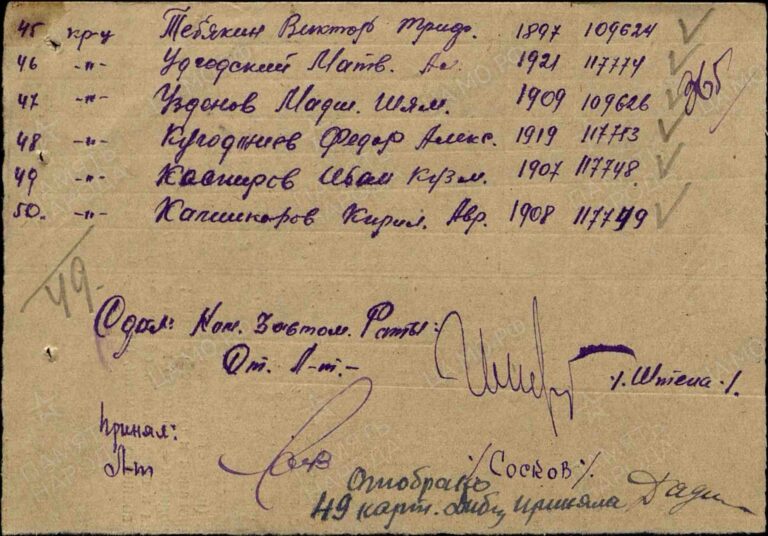 45 кр-ц Тебякин Виктор Триф. 1897 109624
46 -"- Удгодский Матв. Ал. 1921 117774
47 -"- Узденов Маджи. Шям. 1909 109626 265
48 -"- Федор Алекс. 1919 117713
49 -"- Иван Кузм. 1907 117748
50. -"- Кашкаров Кирил. Авр. 1908 117749
49.
Сдал: Ком. 3 автом. Роты:
От. Л-т. -
/. Штепа ./.
Принял:
Л-т
/Сосков/.
Отобрано
49 карт. приняла